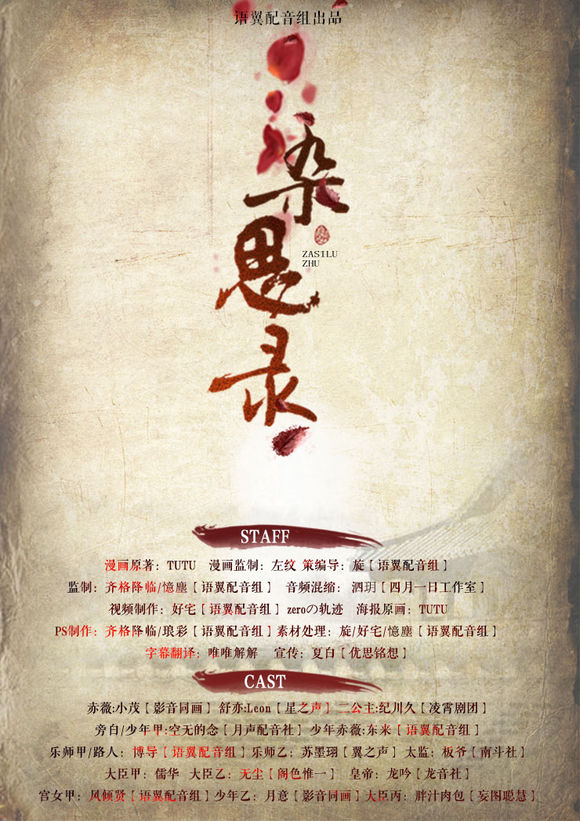 语翼配音组出品
杂思录
ZASILU
ZHU
STAFF
漫画原著：TUTU 漫画监制：左纹 策编导：旋【语翼配音组】
监制：齐格降临/憶塵【语翼配音组】 音频混缩：泗玥【四月一日工作室】
视频制作：好宅【语翼配音组】zeroの轨迹 海报原画：TUTU
PS制作：齐格降临/琅彩【语翼配音组】素材处理：旋/好宅/憶塵【语翼配音组】
字幕翻译：唯唯解解 宣传：夏白【优思铭想】
CAST
赤薇:小茂【影音同画】 舒亦:Leon【星之声】 二公主:纪川久【凌霄剧团】
旁白/少年甲:空无的念【月声配音社】 少年赤薇:东米【语翼配音组】
乐师甲/路人：博导【语翼配音组】乐师乙：苏墨珝【翼之声】 太监：板爷【南斗社】
大臣甲：儒华 大臣乙：无尘【阁色惟一】 皇帝：龙吟【龙音社】
宫女甲：风倾贤【语翼配音组】少年乙：月意【影音同画】大臣丙：胖汁肉包【妄图聪慧】